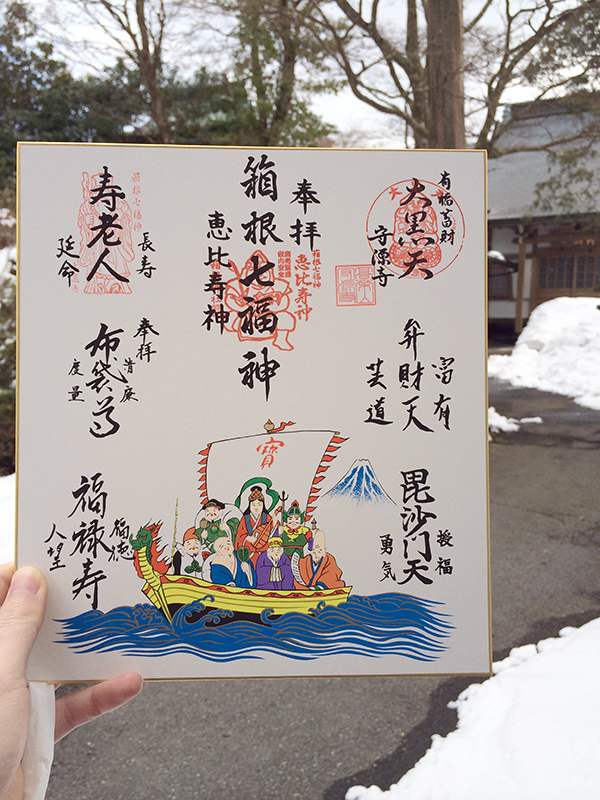 有福蓄財
大黒天
守源寺
富有
弁財天
芸道
授福
毘沙門天
勇気
奉拝
箱根七福神
恵比寿神
箱根七福神
恵比寿神
長寿
寿老人
延命
箱根七福神
奉拝
清廉
布袋尊
度量
福徳
福禄寿
人望
寳